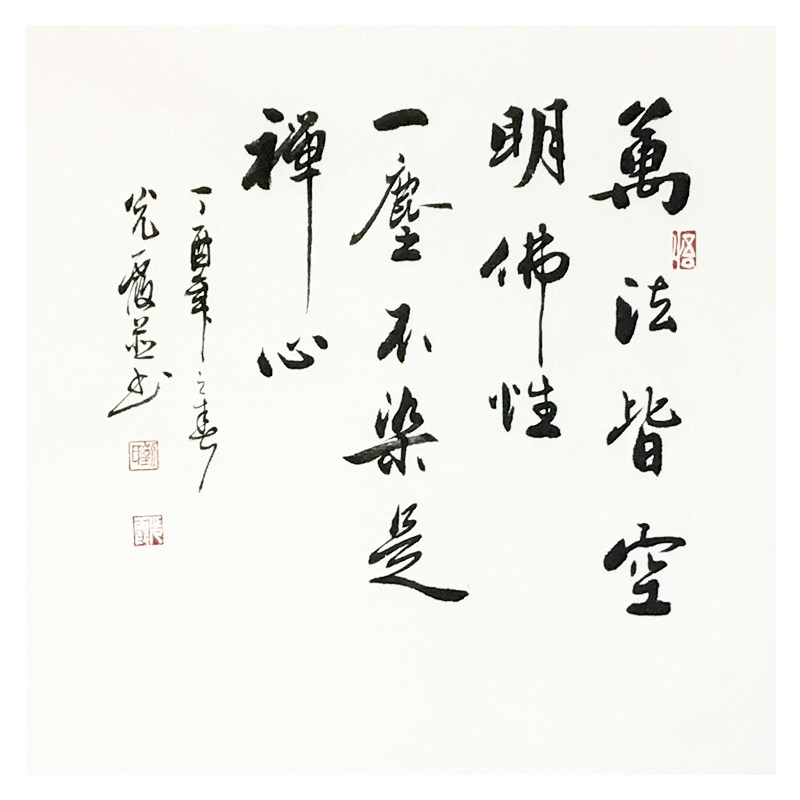 萬法皆空
明佛性
一塵不染是
禪心
丁酉年之春
光霞並书